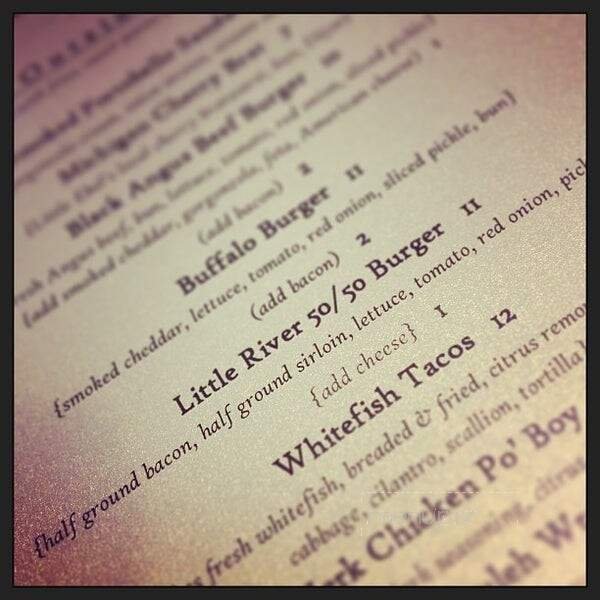 Smoked Portobello
Michigan Cherry Brat 7
Black Angus Beef Burger 10
Angus beef, bun, lettuce, tomato, red onion, sliced pickle}
{add smoked cheddar, gorgonzola, feta, American cheese} 1
(add bacon) 2
Buffalo Burger 11
{smoked cheddar, lettuce, tomato, red onion, sliced pickle, bun}
(add bacon) 2
Little River 50/50 Burger 11
{half ground bacon, half ground sirloin, lettuce, tomato, red onion, pick
{add cheese} 1
Whitefish Tacos 12
fresh whitefish, breaded & fried, citrus remo
cabbage, cilantro, scallion, tortilla
erk Chicken Po' Boy
rk seasoning, citrus
leh Wr